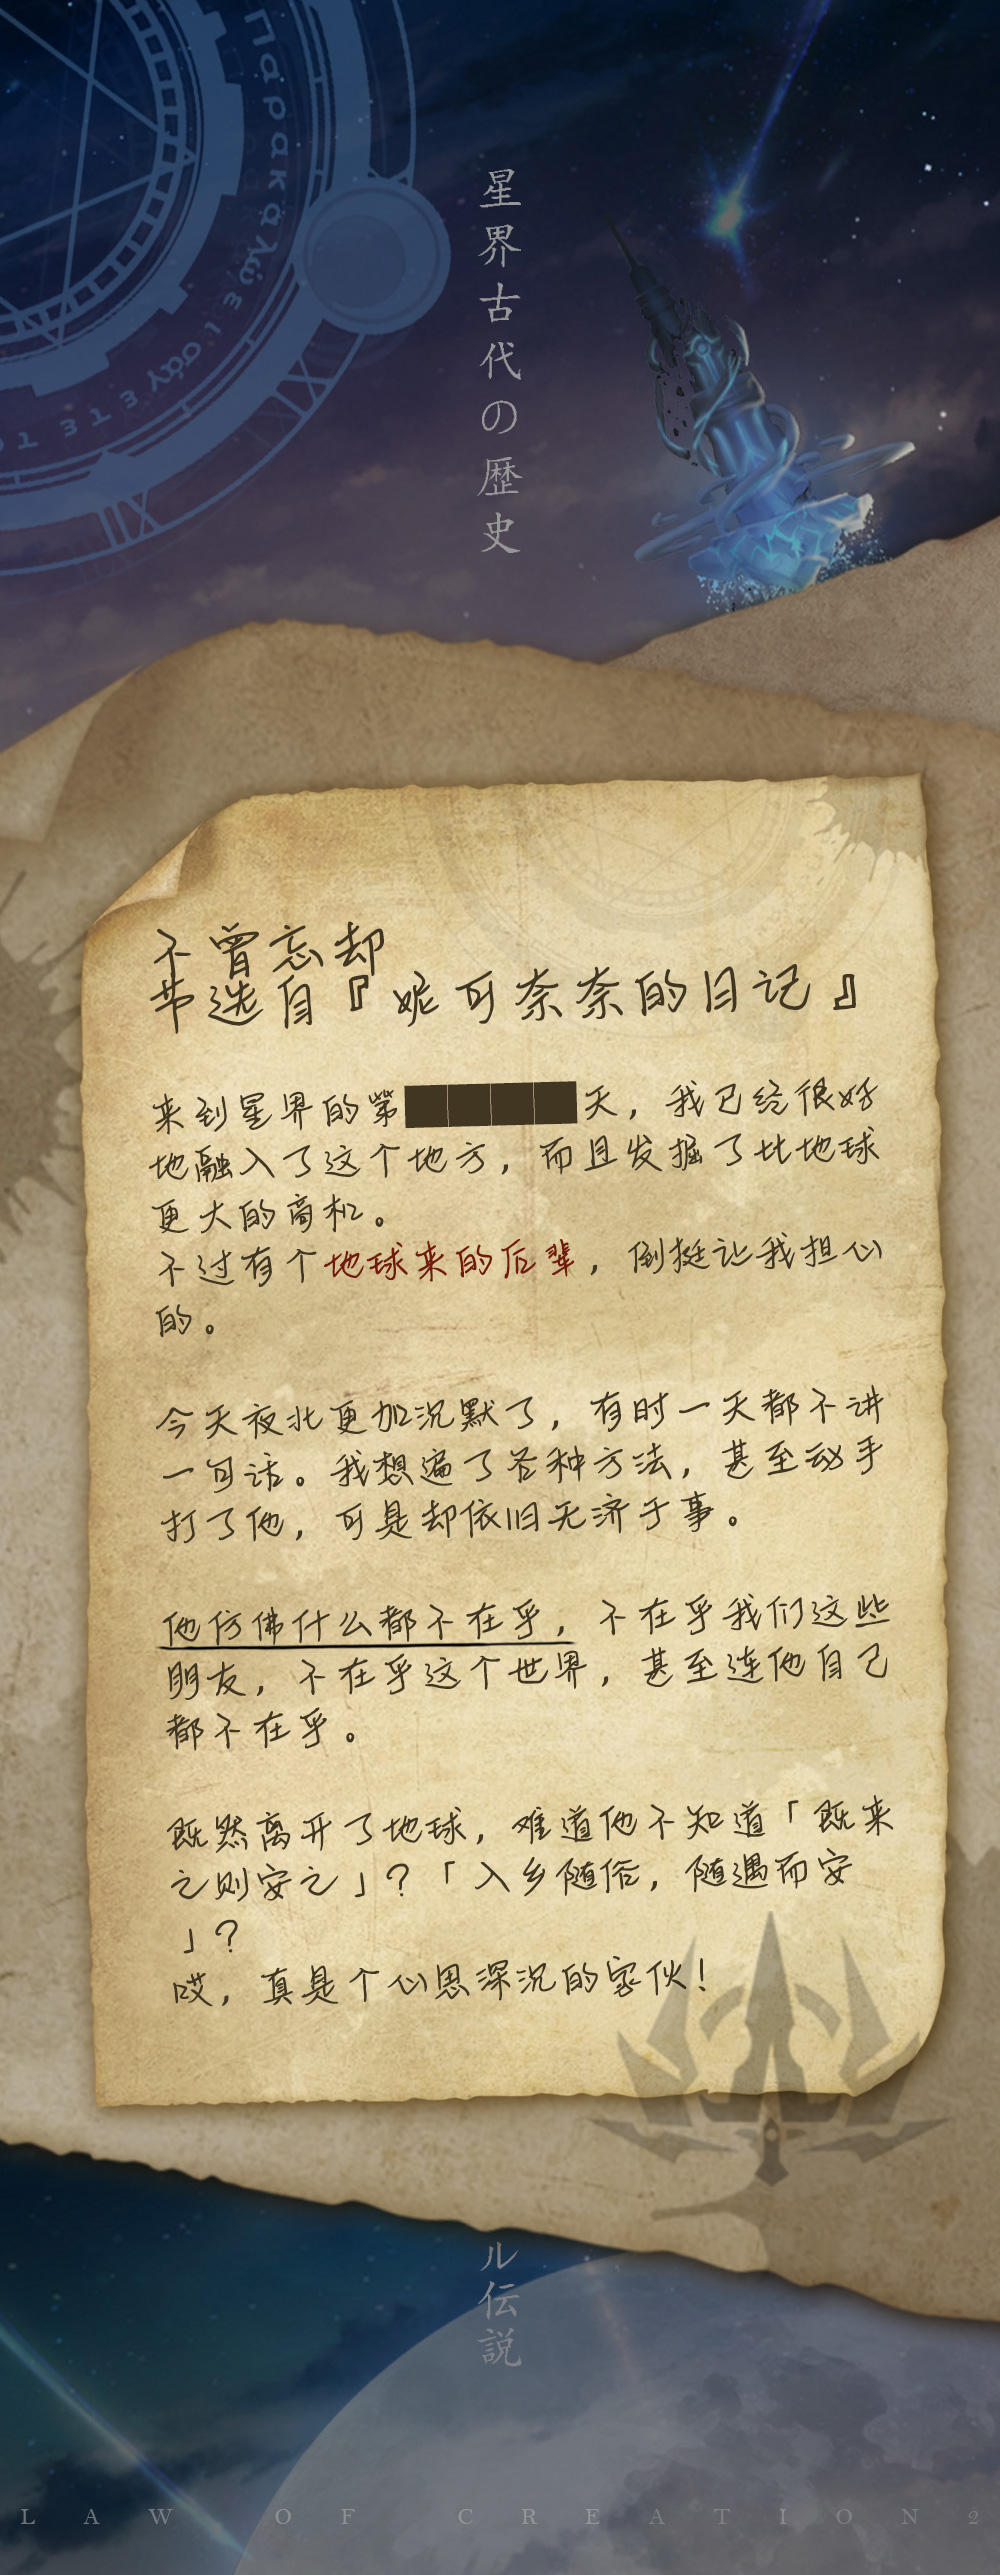 Παρακαλώ εισάγετε το
星界古代の歴史
不曾忘却
节选自『妮可奈奈的日记』
来到星界的第████天，我已经很好
地融入了这个地方，而且发掘了比地球
更大的商机。
不过有个地球来的后辈，倒挺让我担心
的。
今天夜北更加沉默了，有时一天都不讲
一句话。我想遍了各种方法，甚至动手
打了他，可是却依旧无济于事。
他仿佛什么都不在乎，不在乎我们这些
朋友，不在乎这个世界，甚至连他自己
都不在乎。
既然离开了地球，难道他不知道「既来
之则安之」？「入乡随俗，随遇而安
」？
哎，真是个心思深沉的家伙！
ル伝説
LAW OF CREATION2